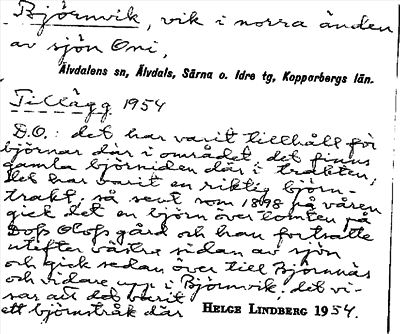 Björnvik, vik i norra änden
av sjön Oni,
Älvdalens sn, Älvdals, Särna o. Idre tg, Kopparbergs län.
Tillägg 1954
D.O.: det har varit tillhåll för
björnar där i området det finns
gamla björniden där i trakten,
det har varit en riktig björn-
trakt, så sent som 1898 på våren
gick det en björn över tomten på
Dofs Olofs gård och han fortsatte
utefter västra sidan av sjön
och gick sedan över till Björnnäs
och vidare upp i Björnvik; det vi-
sar att det varit
ett björnstråk där
HELGE LINDBERG 1954.